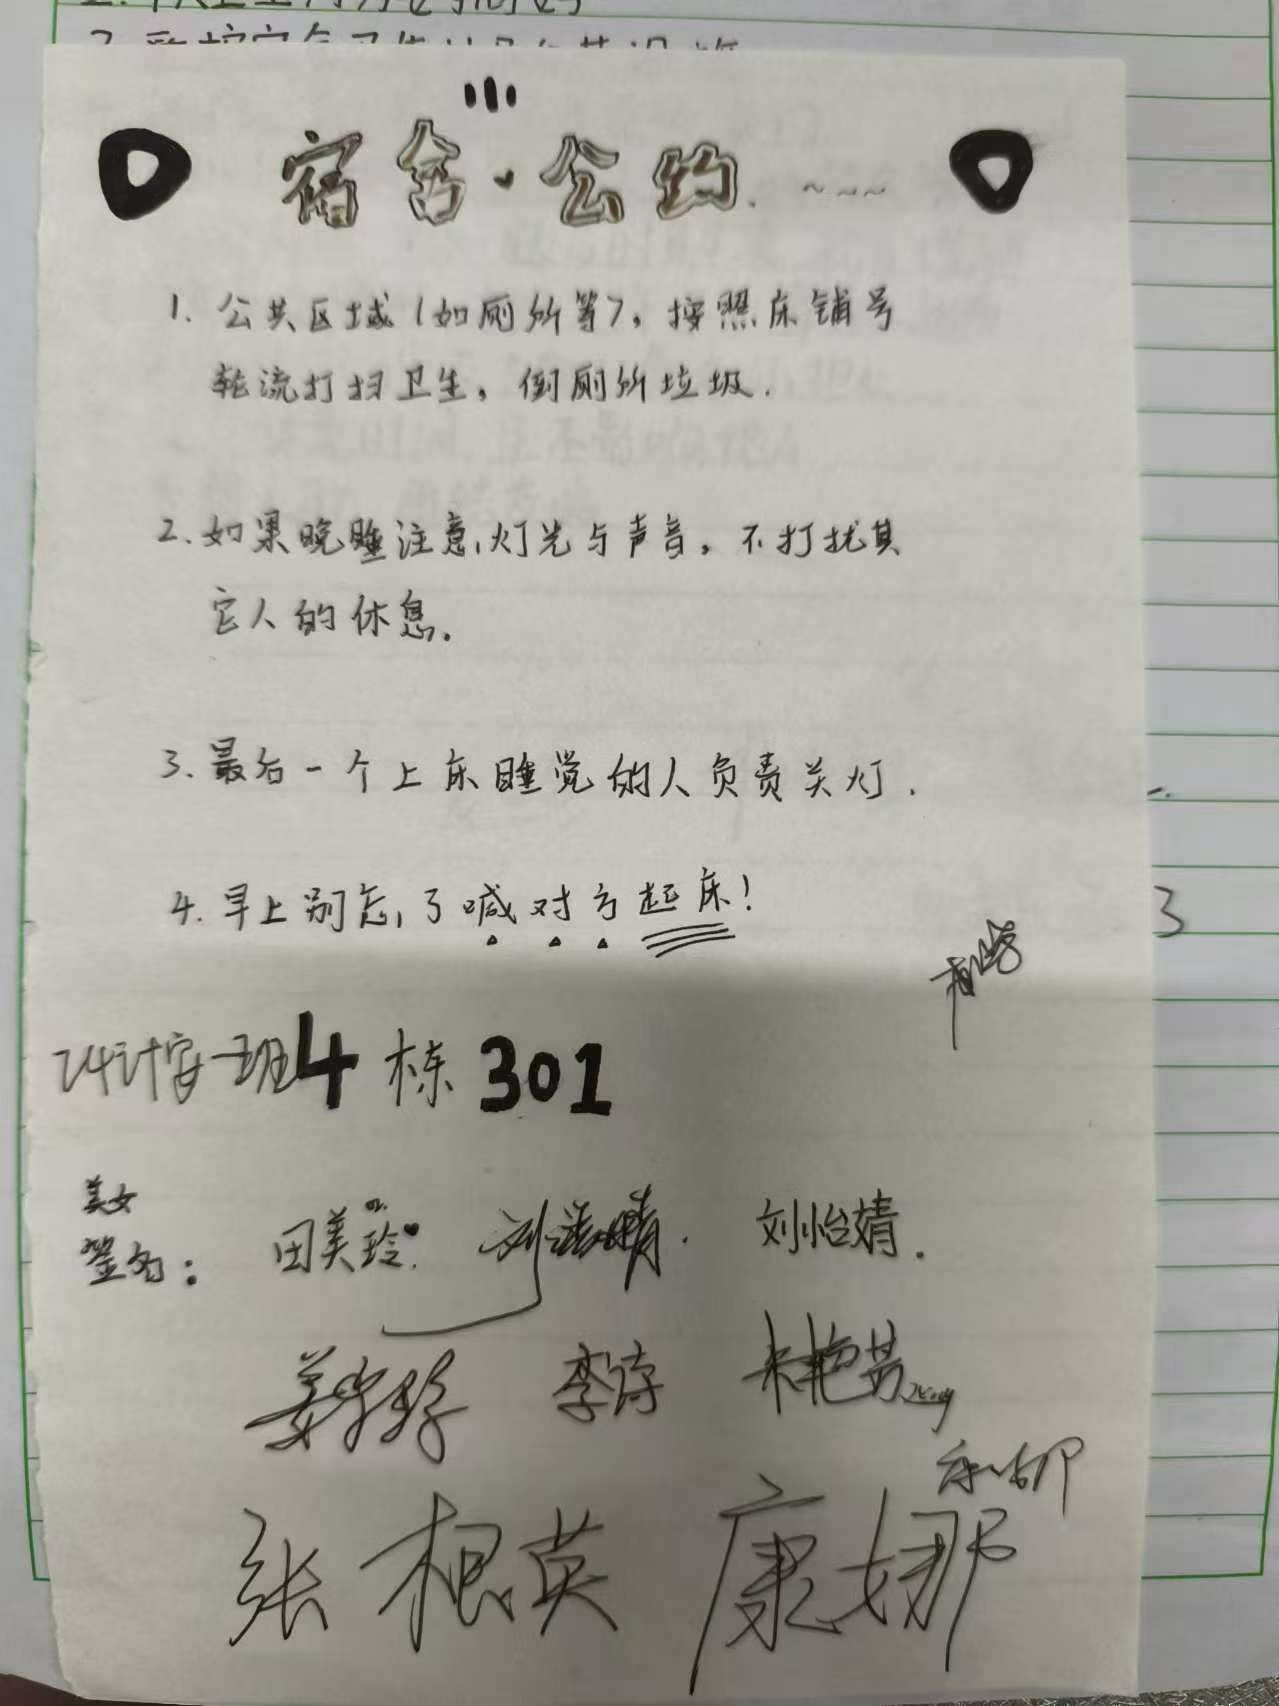 宿舍·公约.~~~
1. 公共区域(如厕所等),按照床铺号
轮流打扫卫生,倒厕所垃圾.
2. 如果晚睡注意灯光与声音,不打扰其
它人的休息.
3. 最后一个上床睡觉的人负责关灯.
4. 早上别忘了喊对方起床!
3
24计字一班4栋301
美女
签名:
田美玲. 刘怡婧.
李诗 朱艳芳
张根英 康娜